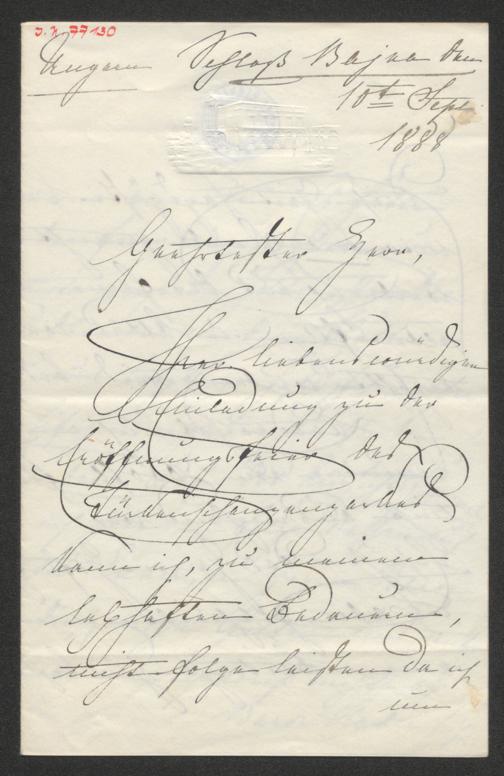 J. N. 77130
Ungarn Schloß Bajna den
10ten Sept.
1888
Geehrtester Herr,
Ihrer liebenswürdigen
Einladung zu der
Eröffnungsfeier des
Türkenschanzgartens
kann ich, zu meinem
lebhaften Bedauern,
nicht folge leisten da ich
um